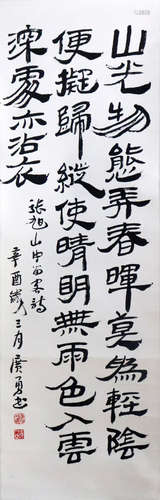 山光物態弄春暉莫為輕陰
便擬歸縱使晴明無雨色入雲
深處亦沾衣
張旭山中留客詩
辛酉歲三月廣勇書